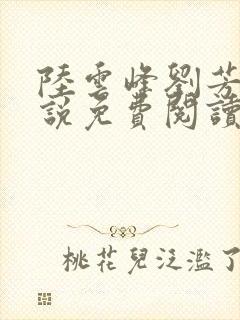 陸雲峰劉芳
說免費閱讀
桃花兒泛濫了